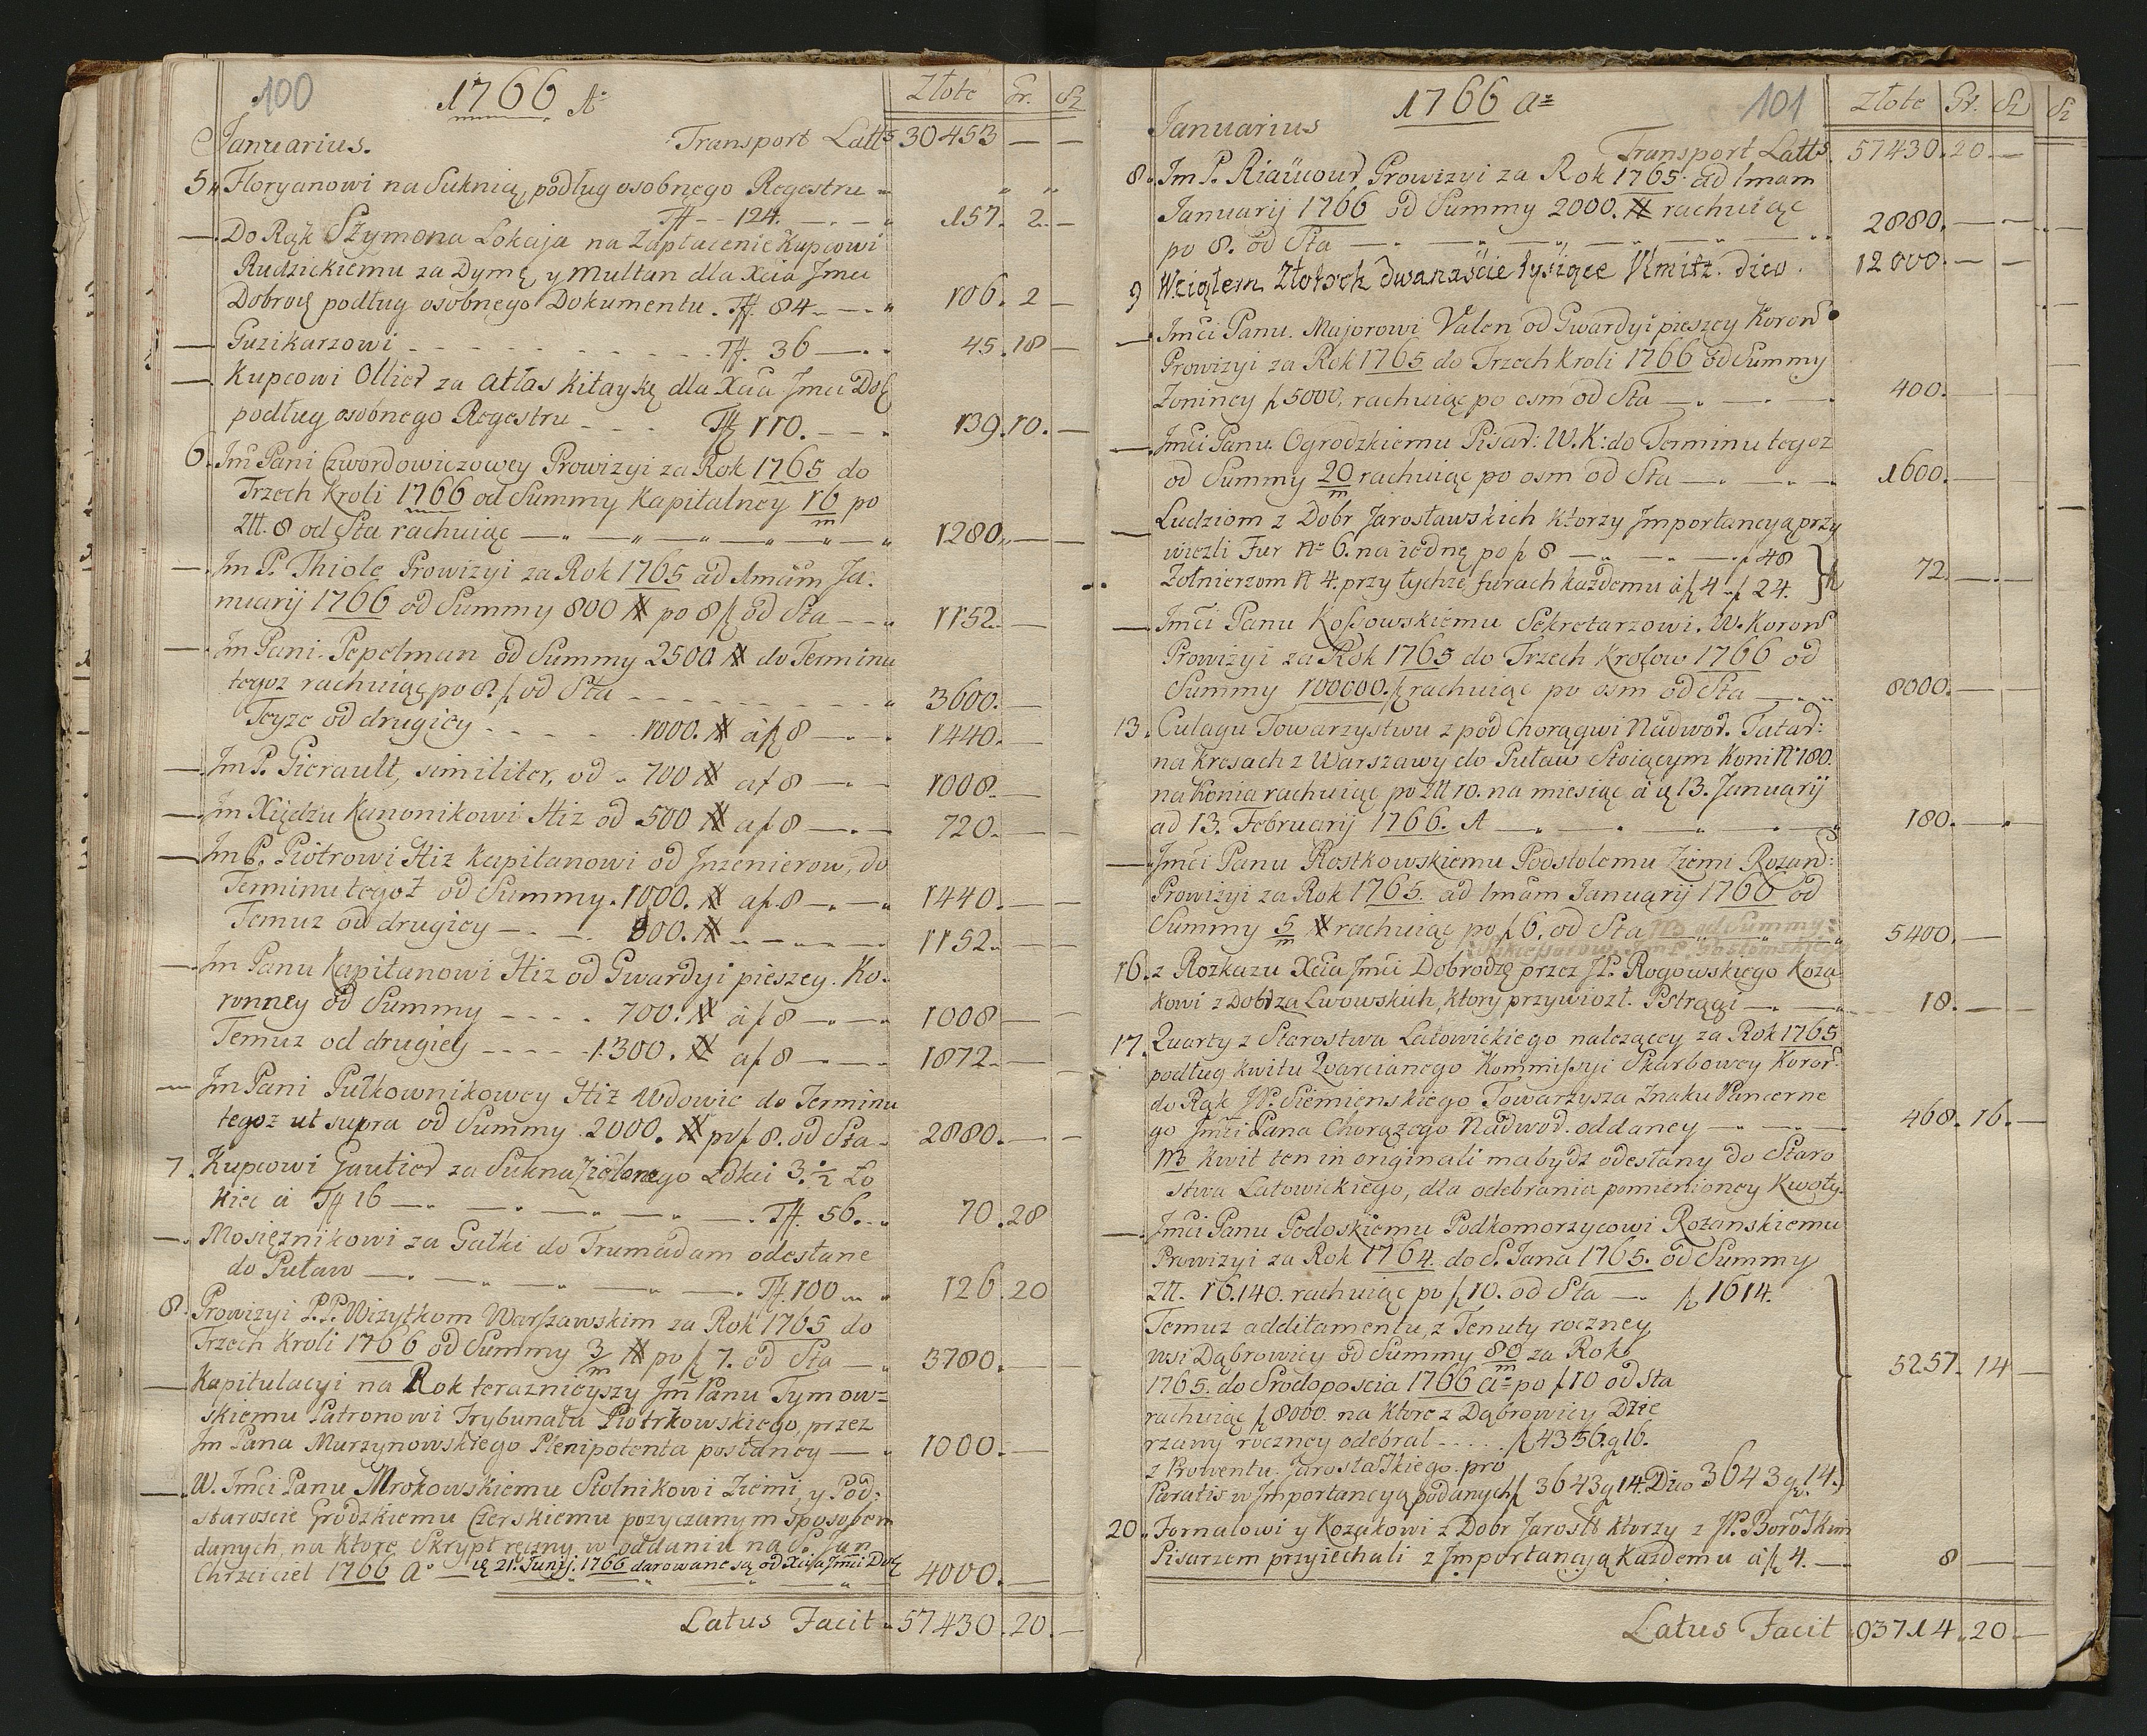 100 1766 Aº Złote Gr. Sz
Januarius. Transport Latts 30453 — —
5 Floryanowi na Suknią, podług osobnego Regestru
Tƒƒ — 124. — 157. 2. —
— Do Rąk Szymona Lokaja na Zapłacenie Kupcowi
Rudzickiemu za Dymę, y Multan dla Xcia Jmci
Dobrodź podług osobnego Dokumentu. Tƒƒ. 84 — 106. 2 —
— Guzikarzowi — Tƒƒ. 36 — 45. 18 —
— Kupcowi Ollier za atłas Kitayką dla Xcia Jmci Dobr
podług osobnego Regestru — Tƒƒ 110. — 139. 10. —
6. Jm Pani Czwordowiczowey Prowizyi za Rok 1765 do
Trzech Kroli 1766 od Summy Kapitalney 16/m po
Złł. 8 od Sta rachuiąc — 1280. —
— Jm P. Thiole Prowizyi za Rok 1765 ad 1mam Ja-
nuarij 1766 od Summy 800 # po 8 ƒ od Sta — 1152. —
— Jm Pani Pepelman od Summy 2500 # do Terminu
tegoż rachuiąc po 8. ƒ od Sta — 3600. —
Teyże od drugiey — 1000. # à ƒ 8 — 1440. —
— Jm P. Gierault, similiter, od 700 # a ƒ 8 — 1008. —
— Jm Xiędzu Kanonikowi Hiz od 500 # a ƒ 8 — 720. —
— Jm P. Piotrowi Hiz Kapitanowi od Inzenierow, do
Terminu tegoż od Summy. 1000. # a ƒ 8 — 1440. —
Temuz od drugiey — 800. # — 1152. —
— Jm Panu Kapitanowi Hiz od Gwardyi pieszey Ko-
ronney od Summy — 700. # à ƒ 8 — 1008 —
Temuz od drugiey — 1300. # a ƒ 8 — 1872. —
— Jm Pani Pułkownikowey Hiz Wdowie do Terminu
tegoż ut supra od Summy 2000. # po ƒ 8. od Sta — 2880. —
7. Kupcowi Gautier za Sukna Zielonego Łokci 3. ½ Ło
kiec à Tƒƒ 16 — Tƒƒ. 56. 70. 28
— Mosięznikowi za Gałki do Trumadam odesłane
do Puław — Tƒƒ. 100 — 126. 20
8. Prowizyi P.P. Wizytkom Warszawskim za Rok 1765 do
Trzech Kroli 1766 od Summy 3/m # po ƒ 7. od Sta — 3780. —
— Kapitulacyi na Rok teraznieyszy Jm Panu Tymow-
skiemu Patronowi Trybunału Piotrkowskiego, przez
Jm Pana Murzynowskiego Plenipotenta posłaney — 1000. —
— W. Jmci Panu Mrokowskiemu Stolnikowi Ziemi, y Pod-
staroscie Grodzkiemu Czerskiemu pozyczanym sposobem
danych, na ktore Skrypt ręczny w oddaniu na S. Jan
Chrzciciel 1766 Aº — 21. Junij. 1766 darowane są od Xcia Jmci Dobr 4000. —
Latus Facit 57430. 20. —
1766 aº 101 Złote Gr. Sz Sz
Januarius Transport Latts. 57430. 20. —
8. Jm P. Riaucour Prowizyi za Rok 1765 ad 1mam
Januarij 1766 od Summy 2000. # rachuiąc
po 8. od Sta — 2880. —
9 Wziąłem Złotych dwanaście tysięce dico. 12000. —
— Jmci Panu Majorowi Valen od Gwardyi pieszey Koron
Prowizyi za Rok 1765 do Trzech Kroli 1766 od Summy
Zoniney ƒ 5000, rachuiąc po osm od Sta — 400. —
— Jmci Panu Ogrodzkiemu Pisar: W.K: do Terminu tegoz
od Summy 20/m rachuiąc po osm od Sta — 1600. —
— Ludziom z Dobr Jarosławskich ktorzy Importancyą przy
wiezli Fur Nº 6. na iednę po ƒ 8 — ƒ 48
Zołnierzom N 4. przy tychze furach kazdemu à ƒ 4 — ƒ 24. } 72. —
— Jmci Panu Koſsowskiemu Sekretarzowi. W. Koron
Prowizyi za Rok 1765 do Trzech Krolow 1766 od
Summy 100000. ƒ rachuiąc po osm od Sta — 8000. —
13. Culagu Towarzystwu z pod Chorągwi Nadwor. Tatar:
na Kresach z Warszawy do Puław Stoiącym Koni Nº 180.
na Konia rachuiąc po Złł 10. na miesiąc à 13. Januarij
ad 13. Februarij 1766. A — 180. —
— Jmci Panu Rostkowskiemu Podstolemu Ziemi Rozan:
Prowizyi za Rok 1765. ad 1mam Januarij 1766 od
Summy 5/m # rachuiąc po ƒ 6. od Sta NB od Summy: 5400. —
16. z Rozkazu Xcia Jmci Dobrodz przez JP. Rogowskiego Koza
kowi z Dobr za Lwowskich, ktory przywiozł Pstrągi — 18. —
17. Quarty z Starostwa Latowickiego nalezącey za Rok 1765
podług kwitu Qvarcianego Kommiſsyi Skarbowey Koron.
do Rąk JP. Siemienskiego Towarzysza Znaku Pancerne
go Jmci Pana Chorązego Nadwor. oddaney — 468. 16. —
NB Kwit ten in originali ma bydz odesłany do Staro
stwa Latowickiego, dla odebrania pomienioney Kwoty.
— Jmci Panu Podoskiemu Podkomorzycowi Rozanskiemu
Prowizyi za Rok 1764. do S. Jana 1765. od Summy
Złł. 16.140. rachuiąc po ƒ 10. od Sta — ƒ 1614.
Temuz additamentu, z Tenuty roczney
wsi Dąbrowicy od Summy 80/m za Rok
1765. do Srodoposcia 1766 aº po ƒ 10 od sta 5257. 14 —
rachuiąc ƒ 8000. na ktore z Dąbrowicy Dzie
rzawy roczney odebrał — ƒ 4356. g 16.
z Prowentu Jarosławskiego pro
Paratis w Importancyą podanych ƒ 3643 g 14. Dico 3643 g. 14.
20. Fornalowi y Kozakowi z Dobr Jarosł ktorzy z JP. Borowskim
Pisarzem przyiechali z Importancyą kazdemu à ƒ 4. — 8 —
Latus Facit 93714. 20. —